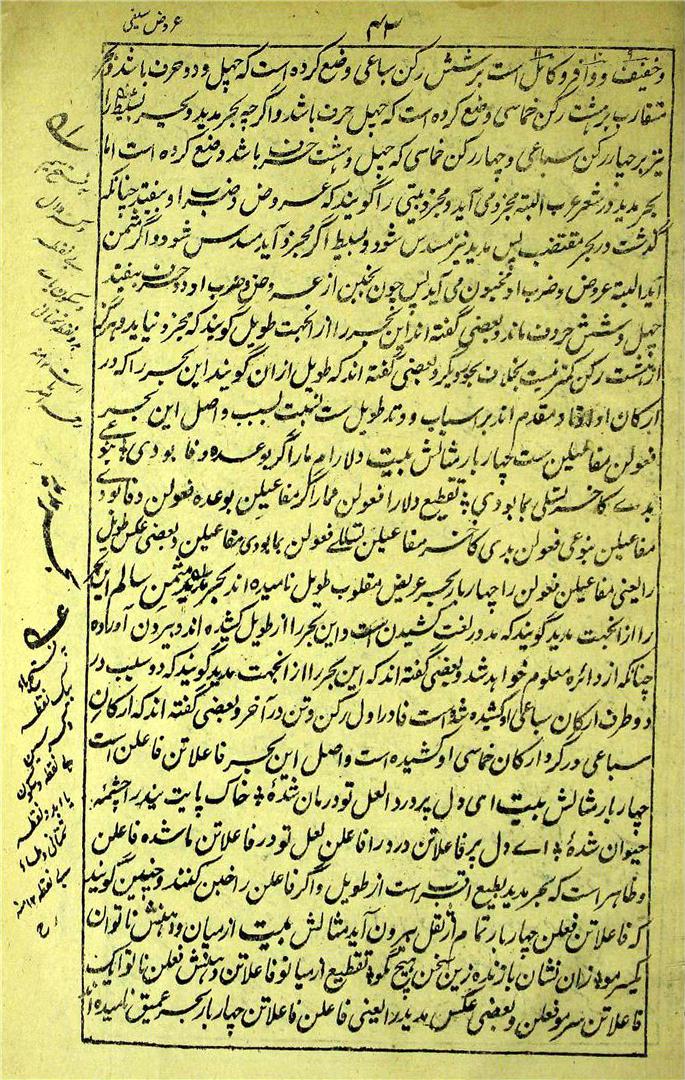 ۴۳
عروض سیفی
و خفیف و وافر و کامل است بر شش رکن سباعی وضع کرده است که چهل و دو حرف باشد و بحر
متقارب بر هشت رکن خماسی وضع کرده است که چهل حرف باشد و اگرچه بحر مدید و بحر بسیط را
نیز بر چهار رکن سباعی و چهار رکن خماسی که چهل و هشت حرف باشد وضع کرده است اما
بحر مدید در شعر عرب البته مجزو می آید و مجزو بیتی را گویند که عروض و ضرب او بیفتد چنانکه
گذشت در بحر مقتضب پس مدید نیز مسدس شود و بسیط اگر مجزو آید مسدس شود و اگر مثمن
آید البته عروض و ضرب او مخبون می آید پس چون بخبن از عروض و ضرب او دو حرف بیفتد
چهل و شش حروف ماند و بعضی گفته اند این بحر را از انجهت طویل گویند که مجزو نیاید و هرگز
از هشت رکن کمتر نیست بخلاف بحور دیگر و بعضی گفته اند که طویل ازان گویند این بحر را که در
ارکان او اوتاد مقدم اند بر اسباب و وتد طویل ست بنسبت سبب و اصل این بحر
فعولن مفاعیلن ست چهار بار مثالش بیت دلارام ما را گر بوعده وفا بودی
بدے کاخر تسلی بما بودی تقطیع دلارا فعولن مما را گر مفاعیلن بوعده فعولن وفا بودی
مفاعیلن فعولن بدی کاخر مفاعیلن تسللی فعولن بما بودی مفاعیلن و بعضی عکس طویل
را یعنی مفاعیلن فعولن را چهار بار بحر عریض مقلوب طویل نامیده اند بحر مدید مثمن سالم این بحر
را از انجهت مدید گویند که مد در لغت کشیدن است و این بحر را از طویل کشیده اند و بیرون آورده
چنانکه از دائره معلوم خواهد شد و بعضی گفته اند که این بحر را از انجهت مدید گویند که دو سبب در
دو طرف ارکان سباعی او کشیده شده است فا در اول رکن و تن در آخر و بعضی گفته اند که ارکان
سباعی در گرد ارکان خماسی او کشیده است و اصل این بحر فاعلاتن فاعلن است
چهار بار مثالش بیت ای دل پر درد را لعل تو درمان شده خاک پایت بنده را چشمه
حیوان شده اے دل پر فاعلاتن درد را فاعلن لعل تو در فاعلاتن ما شده فاعلن
و ظاهر است که بحر مدید بطبع اقرب است از طویل و اگر فاعلن را خبن کنند و چنین گویند
که فاعلاتن فعلن چهار بار تمام از ثقل بیرون آید مثالش بیت از میان و دهنش ناتوان
یکسر مو زان نشان باز نده زین سخن هیچ مگو تقطیع از میانو فاعلاتن دهنش فعلن ناتوا یک
فاعلاتن سر مو فعلن و بعضی عکس مدید را یعنی فاعلن فاعلاتن چهار بار بحر عمیق نامیده اند